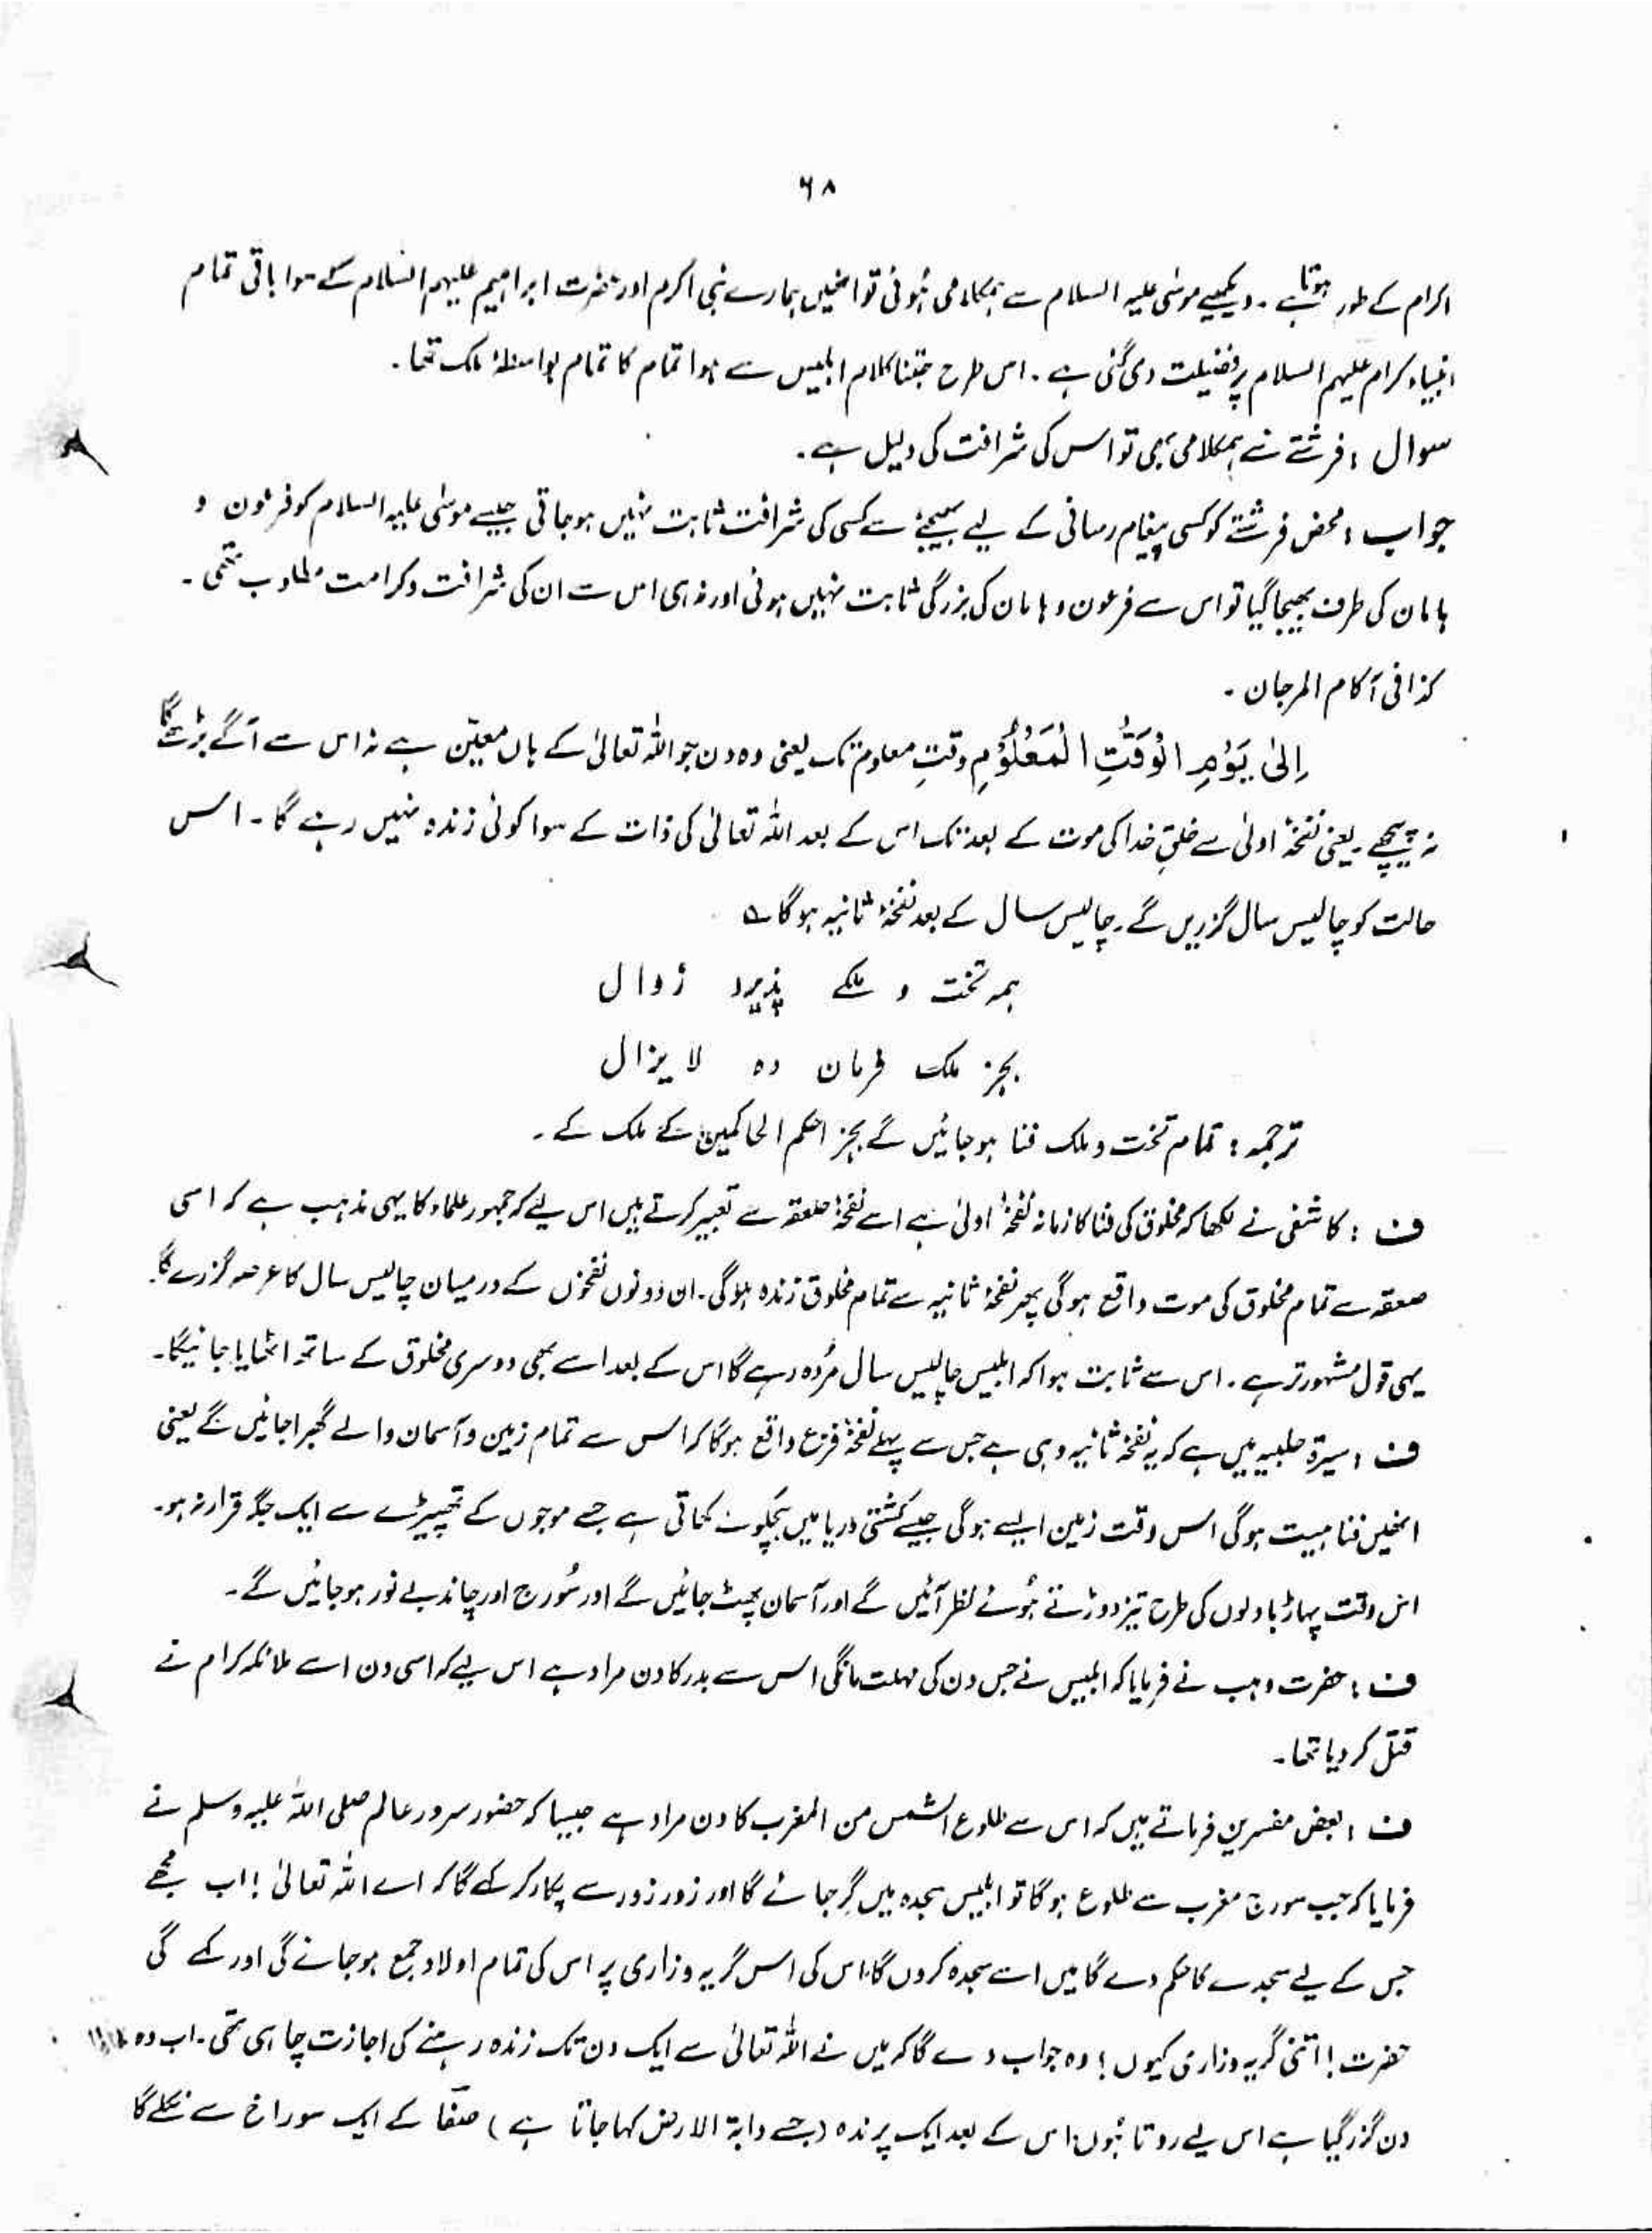 ۶۸
اکرام کے طور ہوتا ہے ۔ دیکھیے موسٰی علیہ السلام سے ہمکلامی ہُوئی تو انھیں ہمارے نبی اکرم اور حضرت ابراہیم علیہم السلام کے سوا باقی تمام
انبیاء کرام علیہم السلام پر فضیلت دی گئی ہے ۔ اس طرح جتنا کلام ابلیس سے ہوا تمام کا تمام بواسطۂ ملک تھا ۔
سوال : فرشتے نے ہمکلامی بھی تو اس کی شرافت کی دلیل ہے ۔
جواب : محض فرشتے کو کسی پیغام رسانی کے لیے بھیجنے سے کسی کی شرافت ثابت نہیں ہو جاتی جیسے موسٰی علیہ السلام کو فرعون و
ہامان کی طرف بھیجا گیا تو اس سے فرعون و ہامان کی بزرگی ثابت نہیں ہوئی اور نہ ہی اس سے ان کی شرافت و کرامت مطلوب تھی ۔
کذا فی آکام المرجان ۔
اِلیٰ یَوْمِ الْوَقْتِ الْمَعْلُوْمِ وقتِ معلوم تک یعنی وہ دن جو اللہ تعالیٰ کے ہاں معیّن ہے نہ اس سے آگے بڑھے گا
نہ پیچھے ۔ یعنی نفخۂ اولیٰ سے خلقِ خدا کی موت کے بعد تک اس کے بعد اللہ تعالیٰ کی ذات کے سوا کوئی زندہ نہیں رہے گا ۔ اس
حالت کو چالیس سال گزریں گے ۔ چالیس سال کے بعد نفخۂ ثانیہ ہوگا ؎
ہمہ تخت و ملکے پذیرد زوال
بجز ملک فرمان دہ لا یزال
ترجمہ : تمام تخت و ملک فنا ہو جائیں گے بجز احکم الحاکمین کے ملک کے ۔
ف : کاشفی نے لکھا کہ مخلوق کی فنا کا زمانہ نفخۂ اولیٰ ہے اسے نفخۂ صعقہ سے تعبیر کرتے ہیں اس لیے کہ جمہور علماء کا یہی مذہب ہے کہ اسی
صعقہ سے تمام مخلوق کی موت واقع ہوگی پھر نفخۂ ثانیہ سے تمام مخلوق زندہ ہوگی ۔ ان دونوں نفخوں کے درمیان چالیس سال کا عرصہ گزرے گا ۔
یہی قول مشہور تر ہے ۔ اس سے ثابت ہوا کہ ابلیس چالیس سال مُردہ رہے گا اس کے بعد اسے بھی دوسری مخلوق کے ساتھ اٹھایا جائیگا ۔
ف : سیرۃ حلبیہ میں ہے کہ یہ نفخۂ ثانیہ وہی ہے جس سے پہلے نفخۂ فزع واقع ہوگا کہ اس سے تمام زمین و آسمان والے گھبرا جائیں گے یعنی
انھیں فنا ہیبت ہوگی اس وقت زمین ایسے ہوگی جیسے کشتی دریا میں ہچکولے کھاتی ہے جسے موجوں کے تھپیڑے سے ایک جگہ قرار نہ ہو ۔
اس وقت پہاڑ بادلوں کی طرح تیز دوڑتے ہُوئے نظر آئیں گے اور آسمان پھٹ جائیں گے اور سُورج اور چاند بے نور ہو جائیں گے ۔
ف : حضرت وہب نے فرمایا کہ ابلیس نے جس دن کی مہلت مانگی اس سے بدر کا دن مراد ہے اس لیے کہ اسی دن اسے ملائکہ کرام نے
قتل کر دیا تھا ۔
ف : بعض مفسرین فرماتے ہیں کہ اس سے طلوع الشمس من المغرب کا دن مراد ہے جیسا کہ حضور سرور عالم صلی اللہ علیہ وسلم نے
فرمایا کہ جب سورج مغرب سے طلوع ہوگا تو ابلیس سجدہ میں گر جائے گا اور زور زور سے پکار کر کہے گا کہ اے اللہ تعالیٰ ! اب مجھے
جس کے لیے سجدے کا حکم دے گا میں اسے سجدہ کروں گا ۔ اس کی اس گریہ و زاری پر اس کی تمام اولاد جمع ہو جائے گی اور کہے گی
حضرت ! اتنی گریہ وزاری کیوں ! وہ جواب دے گا کہ میں نے اللہ تعالیٰ سے ایک دن تک زندہ رہنے کی اجازت چاہی تھی ۔ اب وہ
دن گزر گیا ہے اس لیے روتا ہُوں ۔ اس کے بعد ایک پرندہ (جسے دابۃ الارض کہا جاتا ہے) صفا کے ایک سوراخ سے نکلے گا